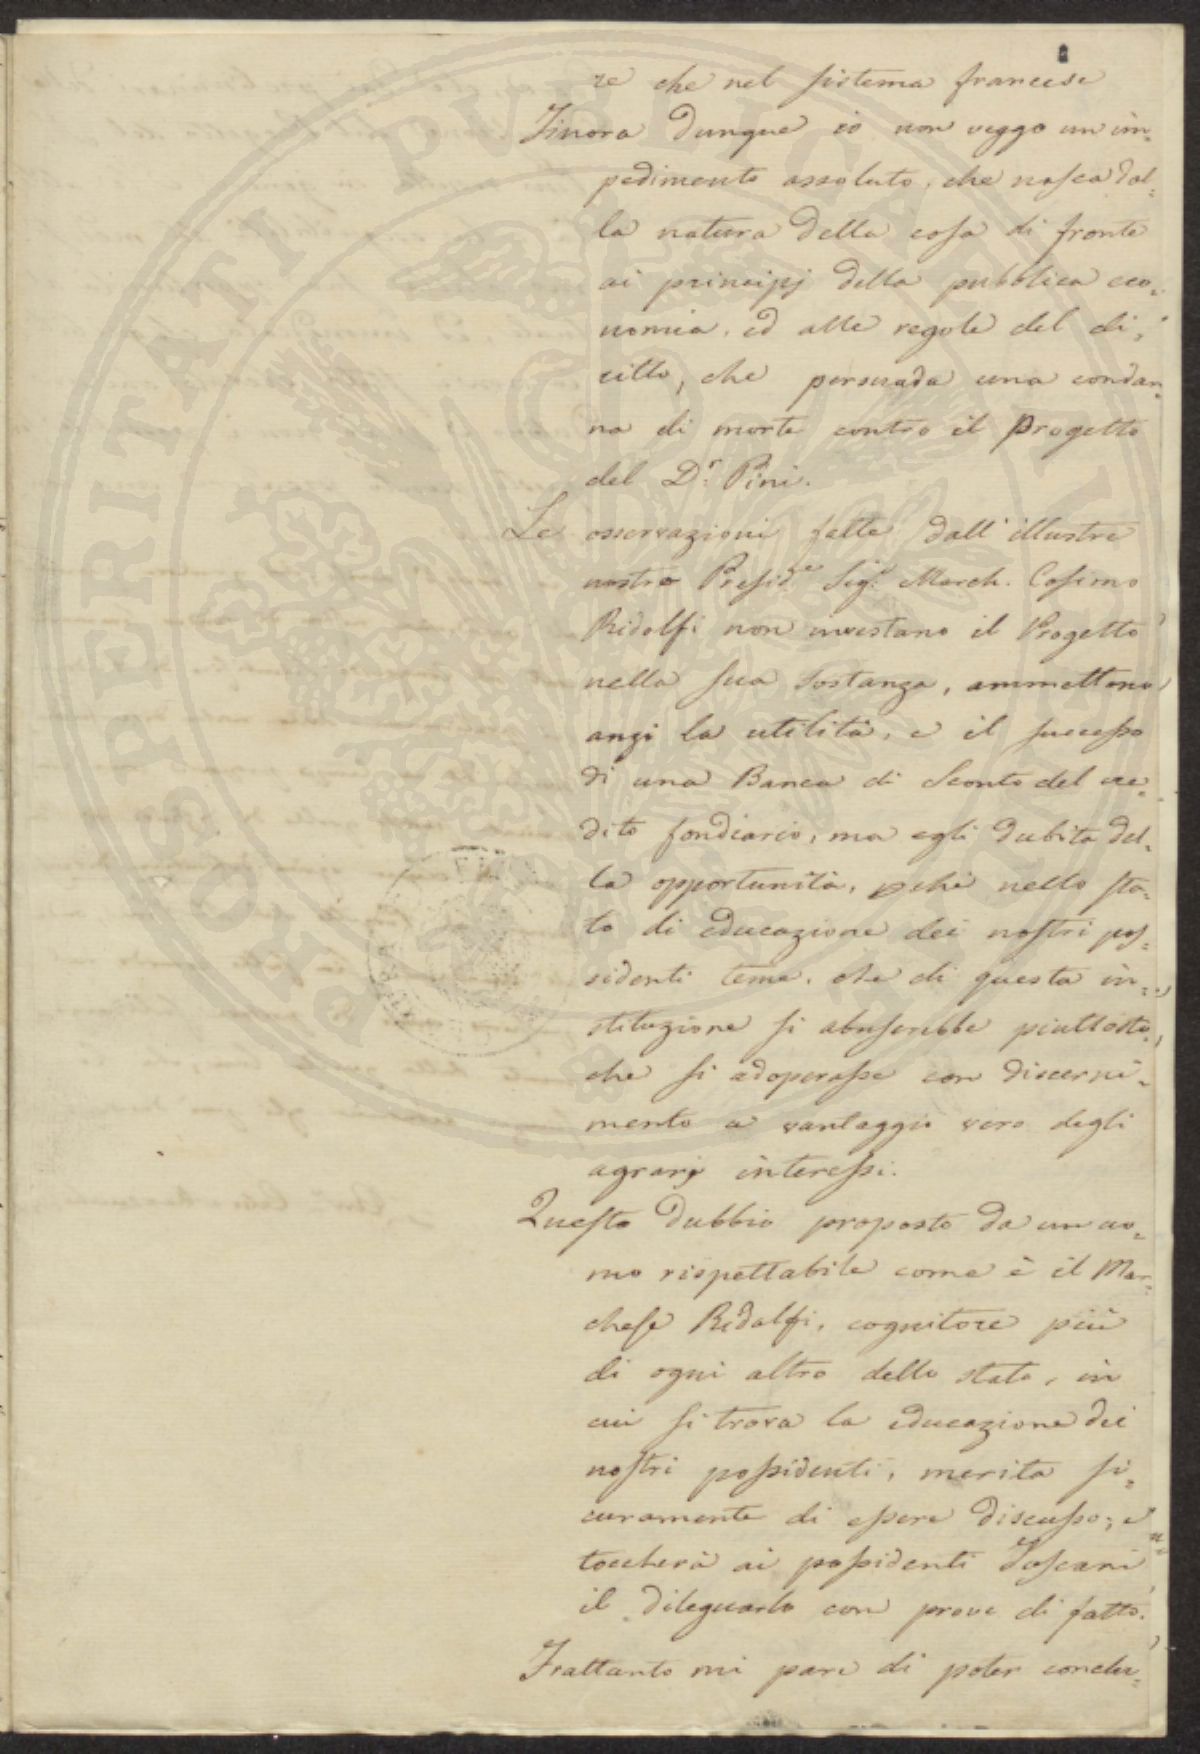 re che nel sistema francese
Finora dunque io non veggo un im-
pedimento assoluto, che nasca dal-
la natura della cosa di fronte
ai principj della pubblica eco-
nomia, ed alle regole del di-
ritto, che persuada una condan-
na di morte contro il Progetto
del D.r Pini.
Le osservazioni fatte dall'illustre
nostro Presid.e Sig.r March. Cosimo
Ridolfi non investano il Progetto
nella sua sostanza, ammettono
anzi la utilità, e il successo
di una Banca di Sconto del cre-
dito fondiario, ma egli dubita del-
la opportunità, pchè nello sta-
to di educazione dei nostri pos-
sidenti teme, che di questa in-
stituzione si abuserebbe piuttosto,
che si adoperasse con discerni-
mento a vantaggio vero degli
agrarj interessi.
Questo dubbio proposto da un uo-
mo rispettabile come è il Mar-
chese Ridolfi, cognitore più
di ogni altro dello stato, in
cui si trova la educazione dei
nostri possidenti, merita si-
curamente di essere discusso; e
toccherà ai possidenti Toscani
il dileguarlo con prove di fatto.
Frattanto mi pare di poter conclu-
PROSPERITATI PUBLICAE